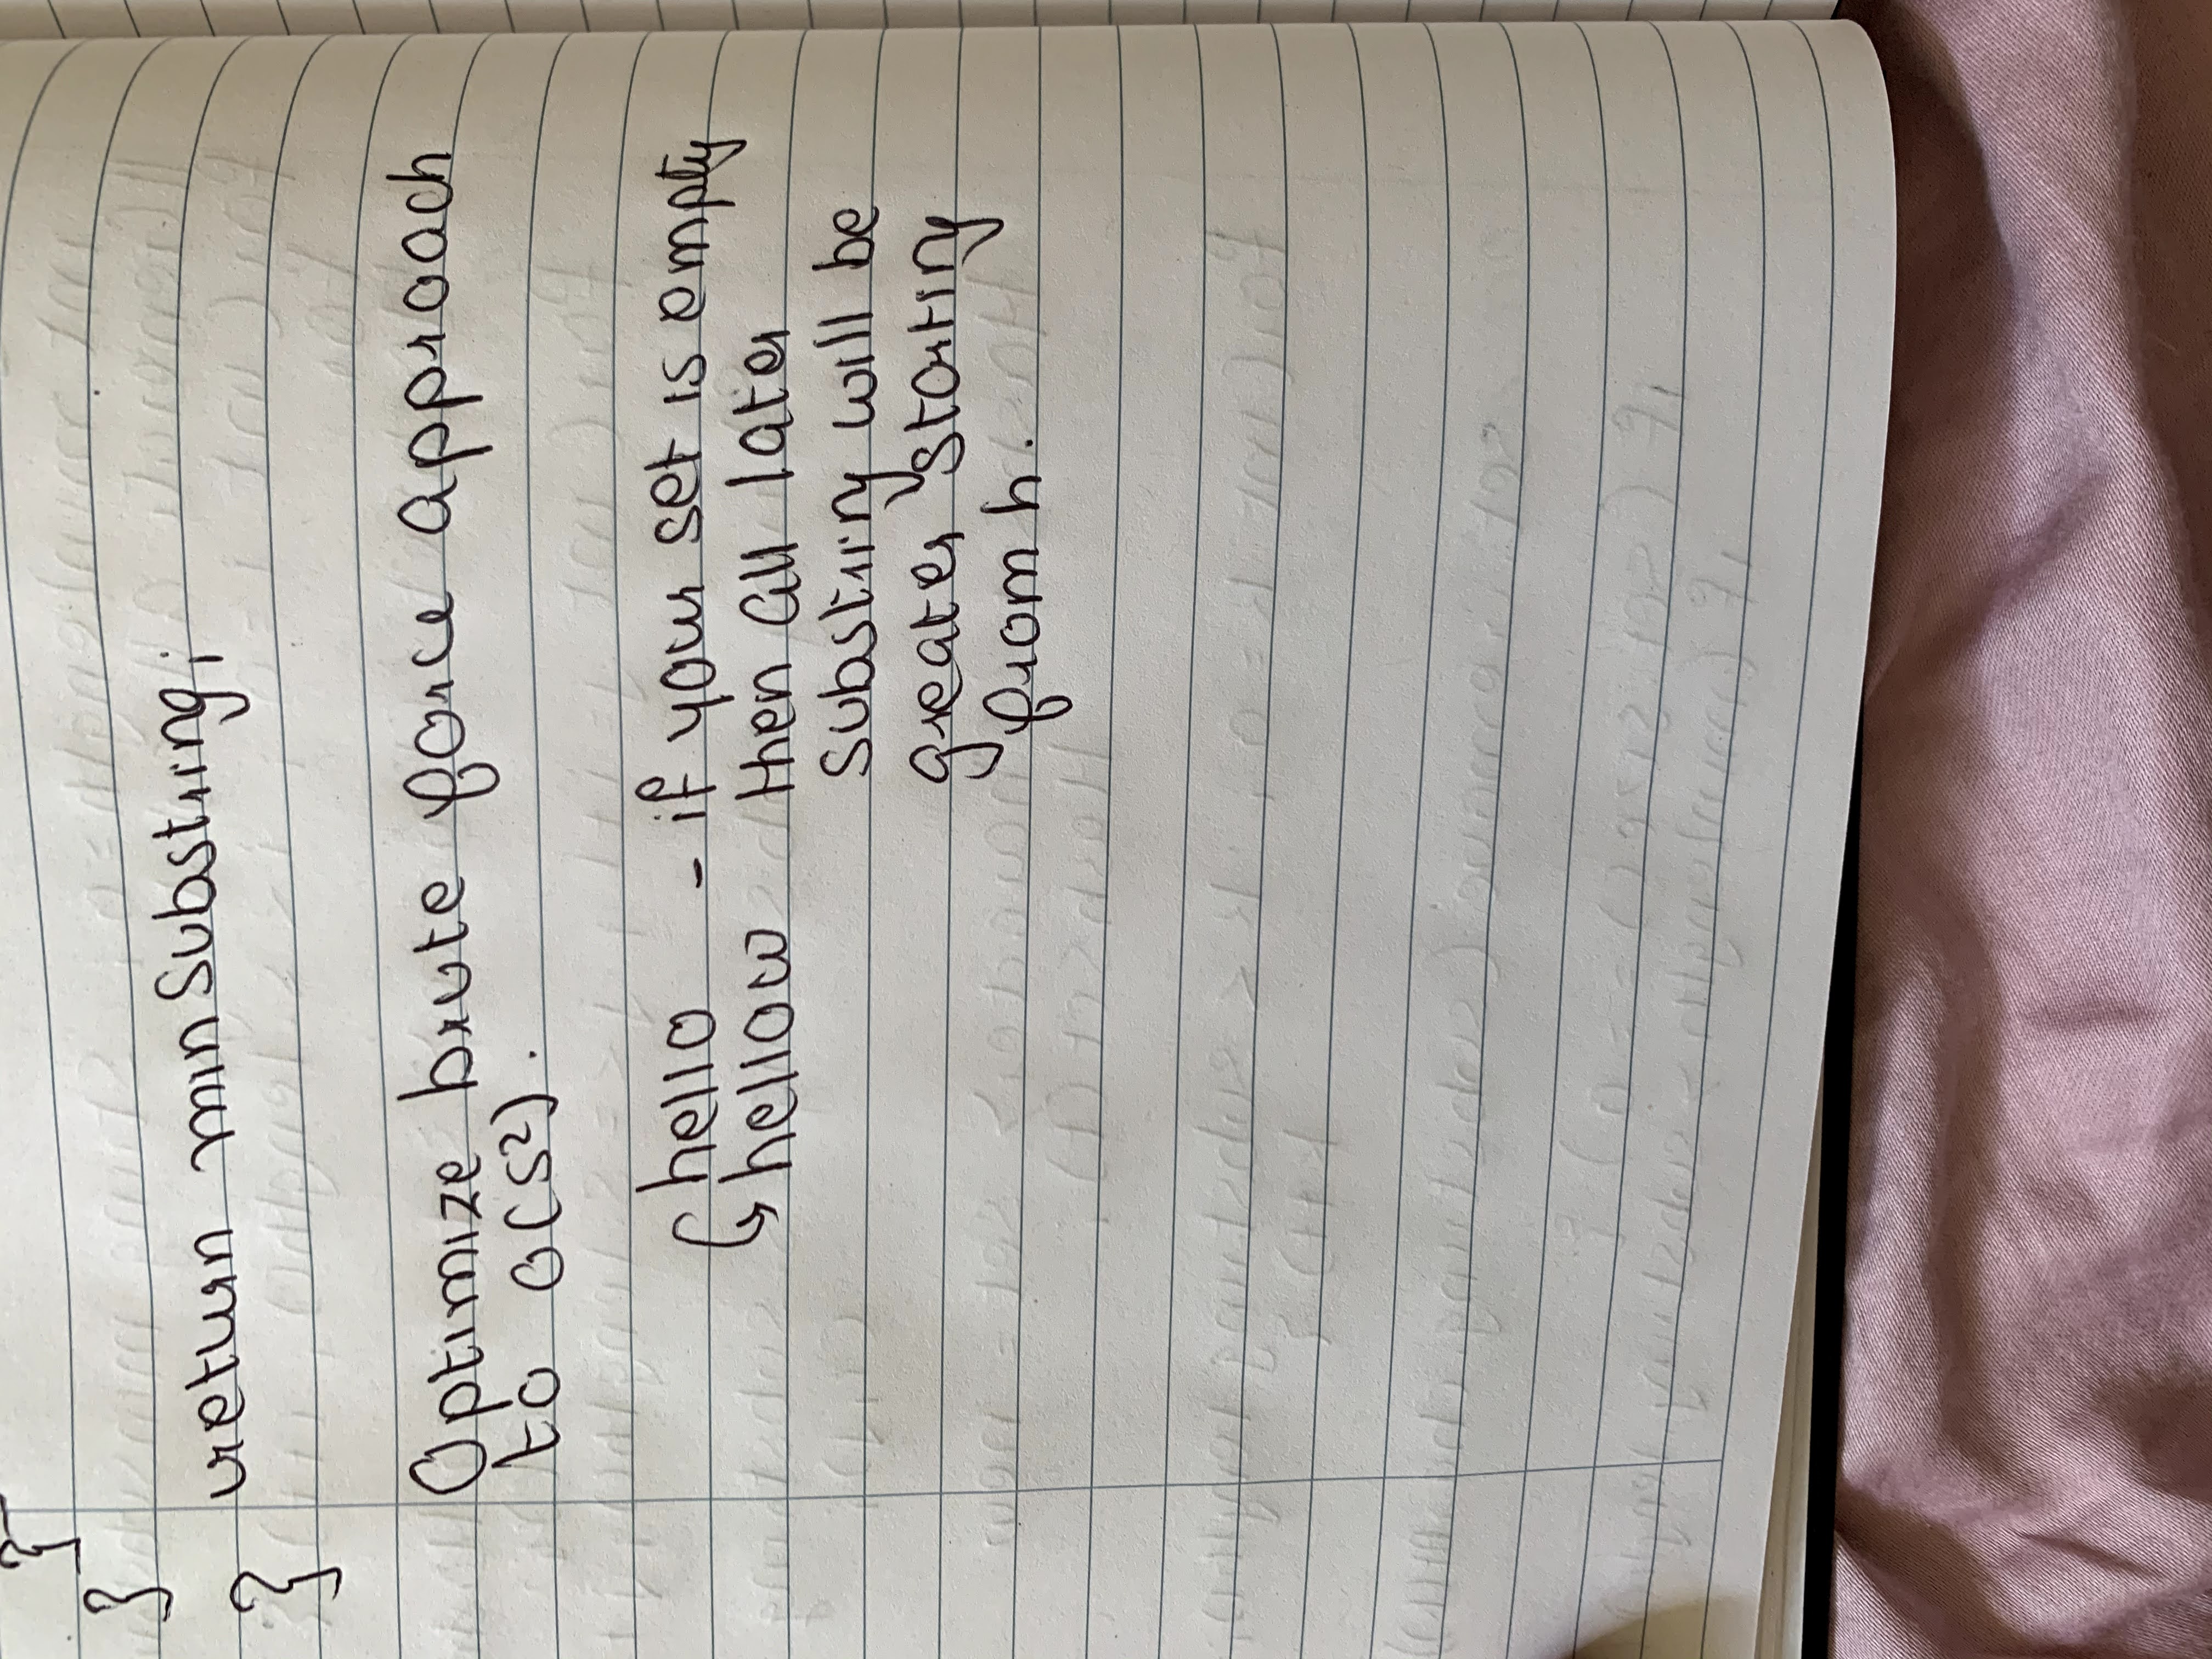 }
}
return minSubstring;
}
Optimize brute force approach
to O(S²).
hello - if your set is empty
hellow then all later
substring will be
greater starting
from h.